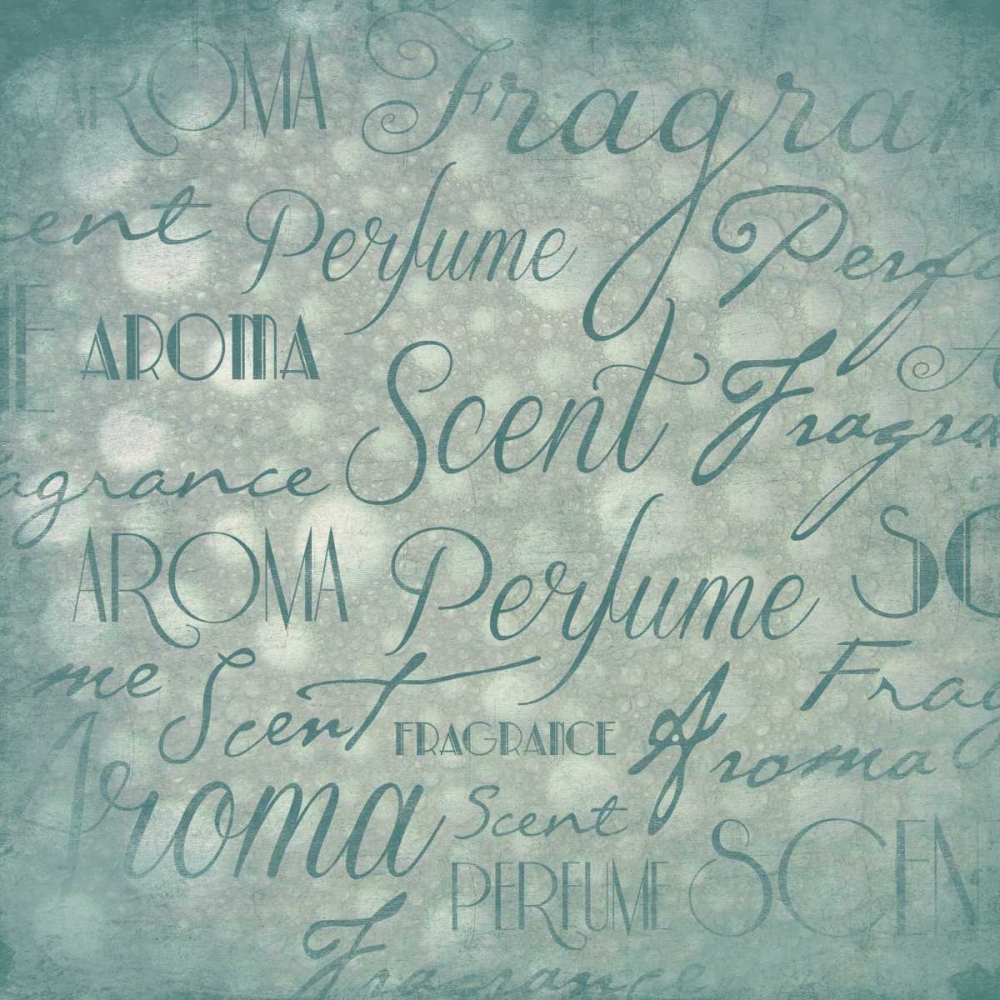 AROMA Fragran
cent Perfume Perfu
E AROMA
Scent Fragra
agrance
AROMA Perfume SC
me Scent Frag
FRAGRANCE Aroma
Aroma Scent
PERFUME SCEN
Fragrance